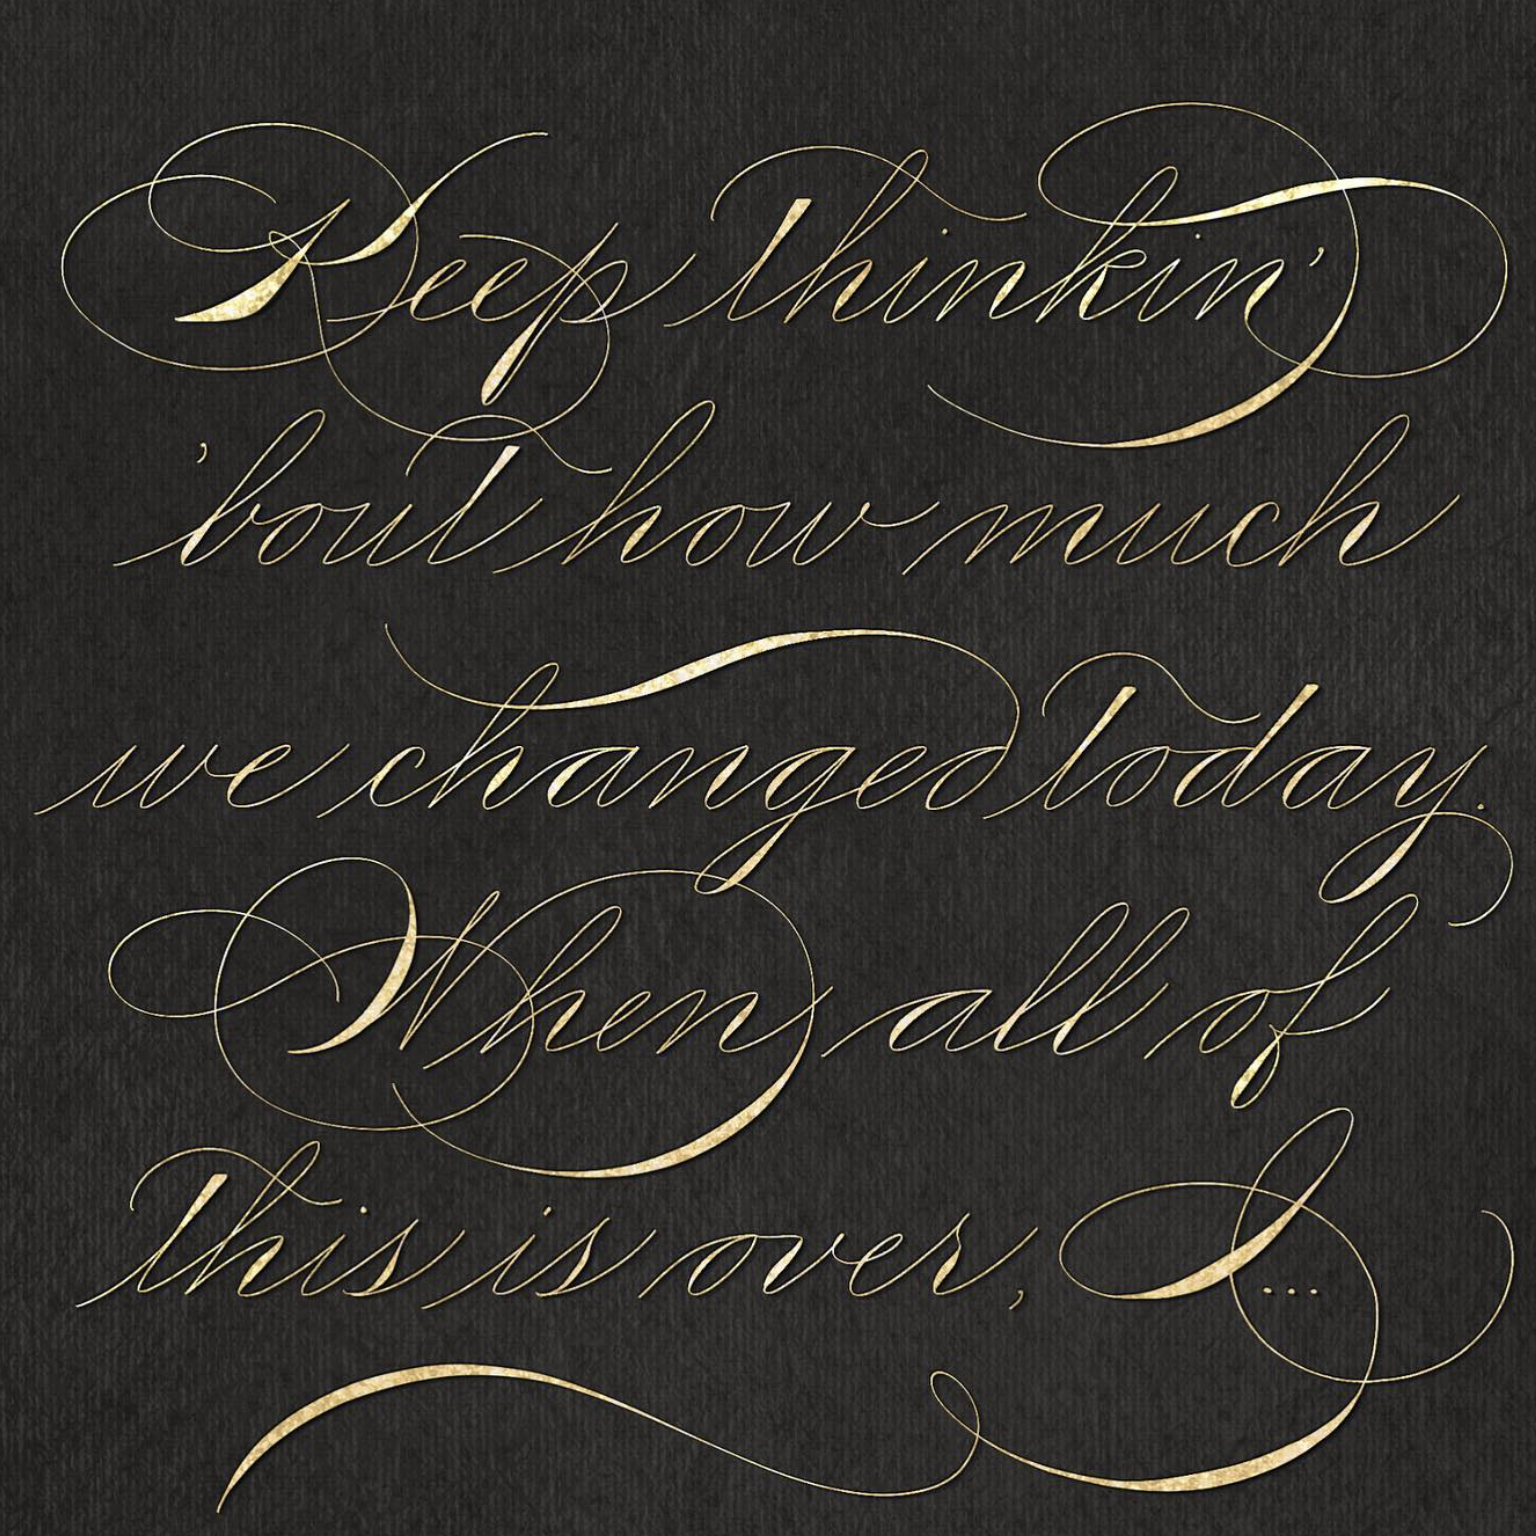 Keep thinkin'
'bout how much
we changed today.
When all of
this is over, I...